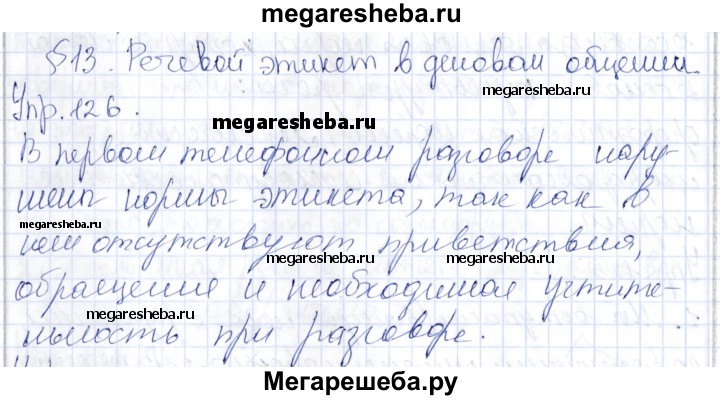 megaresheba.ru
§13. Речевой этикет в деловом общении.
megaresheba.ru
Упр. 126.
megaresheba.ru
В первом телефонном разговоре нару-
megaresheba.ru
шены нормы этикета, так как в
megaresheba.ru
нём отсутствуют приветствия,
megaresheba.ru megaresheba.ru
обращения и необходимая учтите-
megaresheba.ru
льность при разговоре.
Мегарешеба.ру